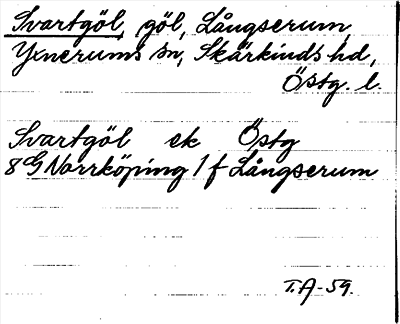 Svartgöl, göl, Långserum,
Yxnerums sn, Skärkinds hd,
Östg. l.
Svartgöl ek Östg
8G Norrköping 1 f Långserum
T.A-59.